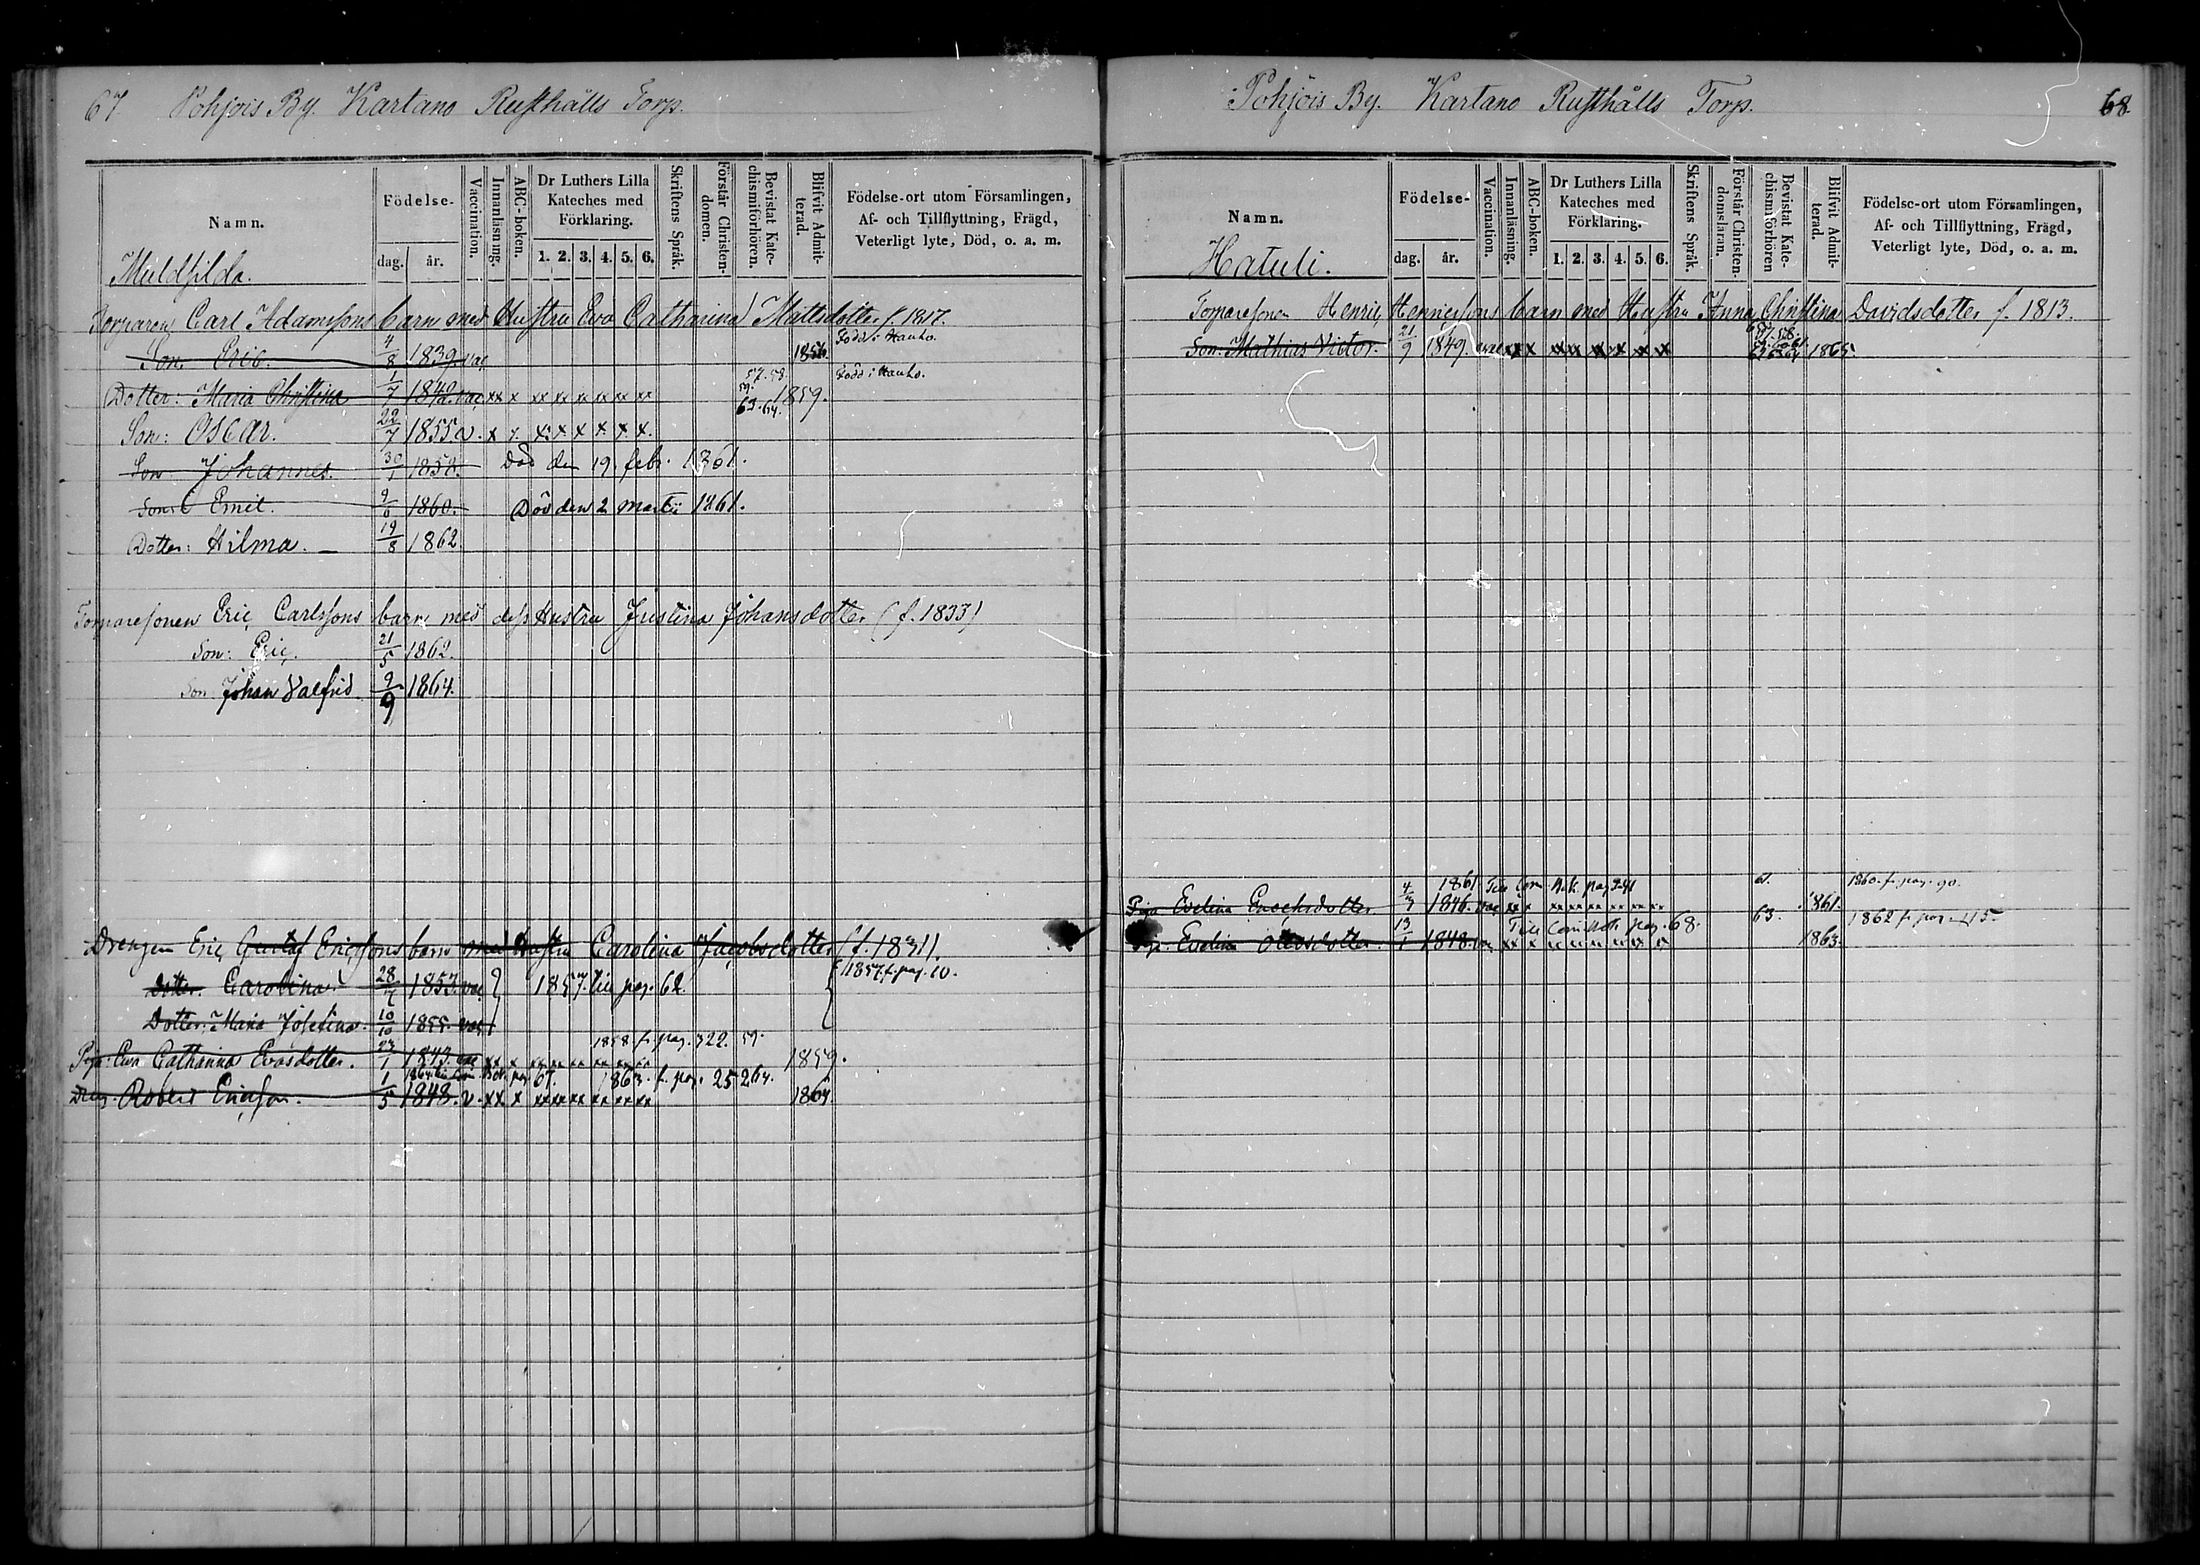 67. Pohjois By. Kartano Rusthålls Torp.
Namn.
Födelse-
dag. år.
Vaccination.
Innanläsning.
ABC-boken.
Dr Luthers Lilla Kateches med Förklaring.
1. 2. 3. 4. 5. 6.
Skriftens Språk.
Förstår Christendomen.
Bevistat Katechismiförhören.
Blifvit Admitterad.
Födelse-ort utom Församlingen, Af- och Tillflyttning, Frägd, Veterligt lyte, Död, o. a. m.
Torparen Carl Adamssons barn med Hustru Eva Catharina Mattsdotter f. 1817.
Son Eric. 4/8 1839. vac 1856. Född i Hauho.
Dotter: Maria Christina 1/7 1842. vac xx x xx xx xx xx xx xx 57. 58. 59. 63. 64. 1859. Född i Hauho.
Son: Oscar. 22/7 1855. v. x x x x x x x x.
Son Johannes. 30/1 1858. Död den 19. febr. 1861.
Son: Emil. 9/6 1860. Död den 2 martii 1861.
Dotter: Hilma. 19/8 1862.
Torparesonen Eric Carlssons barn med dess Hustru Justina Johansdotter (f. 1833)
Son: Eric. 21/5 1862.
Son Johan Valfrid 9/9 1864.
Drengen Eric Gustaf Ericssons barn med Hustru Carolina Jacobsdotter (f. 1831).
Dotter. Carolina 28/7 1853. vac 1857. till pag. 62. 1857 f. pag. 10.
Dotter: Maria Josefina. 10/10 1855. vac
1858 f. pag. 322. 59.
Piga: Eva Catharina Evasdotter. 23/1 1843. vac xx x xx xx xx xx xx xx 1859.
1864 till Com Bok. pag 67. 1863. f. pag. 252 64.
Dreng. Robert Ericsson. 1/5 1848. v. xx x xx xx xx xx xx xx 1864.
Pohjois By. Kartano Rusthålls Torp. 68.
Namn.
Hatuli.
Födelse-
dag. år.
Vaccination.
Innanläsning.
ABC-boken.
Dr Luthers Lilla Kateches med Förklaring.
1. 2. 3. 4. 5. 6.
Skriftens Språk.
Förstår Christendomslaran.
Bevistat Katechismiförhören
Blifvit Admitterad.
Födelse-ort utom Församlingen, Af- och Tillflyttning, Frägd, Veterligt lyte, Död, o. a. m.
Torparesonen Henric Henricssons barn med Hustru Anna Christina Davidsdotter f. 1813.
Son: Mathias Victor. 21/9 1849. vac xx x xx xx xx xx xx xx 1865.
1861 Till Com. Bok. pag 61. 1860. f. pag. 90.
Piga Evelina Enochsdotter. 1846. vac xx x xx xx xx xx xx xx 1861.
Till Com. Bok pag. 68. 63. 1862 f. pag. 45.
Piga: Evelina 13/1 1848. xx x xx xx xx xx xx xx 1863